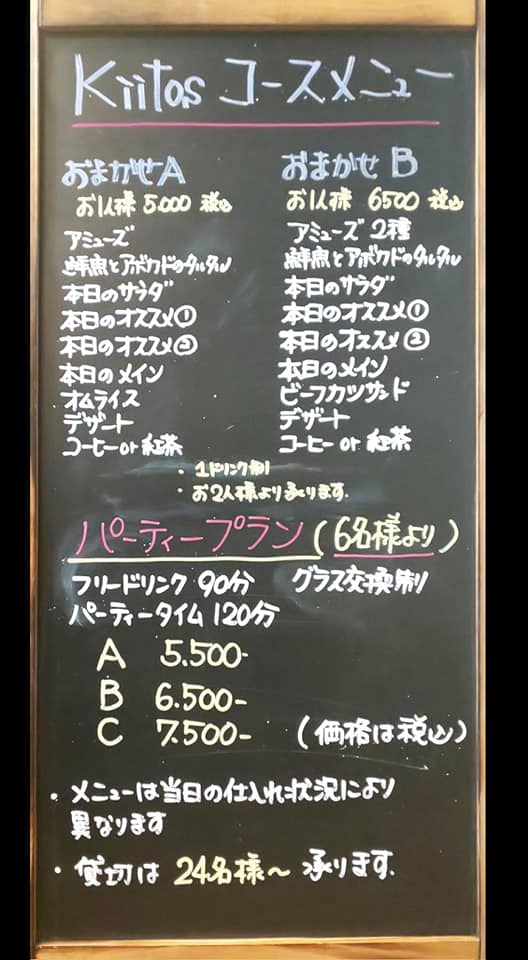 Kiitos コースメニュー
おまかせA
お1人様 5.000 税込
アミューズ
鮮魚とアボカドのタルタル
本日のサラダ
本日のオススメ①
本日のオススメ②
本日のメイン
オムライス
デザート
コーヒーor 紅茶
おまかせ B
お1人様 6500 税込
アミューズ 2種
鮮魚とアボカドのタルタル
本日のサラダ
本日のオススメ①
本日のオススメ②
本日のメイン
ビーフカツサンド
デザート
コーヒー or 紅茶
・1ドリンク制
・お2人様より承ります.
パーティープラン (6名様より)
フリードリンク 90分 グラス交換制
パーティータイム 120分
A 5.500-
B 6.500-
C 7.500- (価格は税込)
・メニューは当日の仕入れ状況により
異なります
・貸切は 24名様～ 承ります.